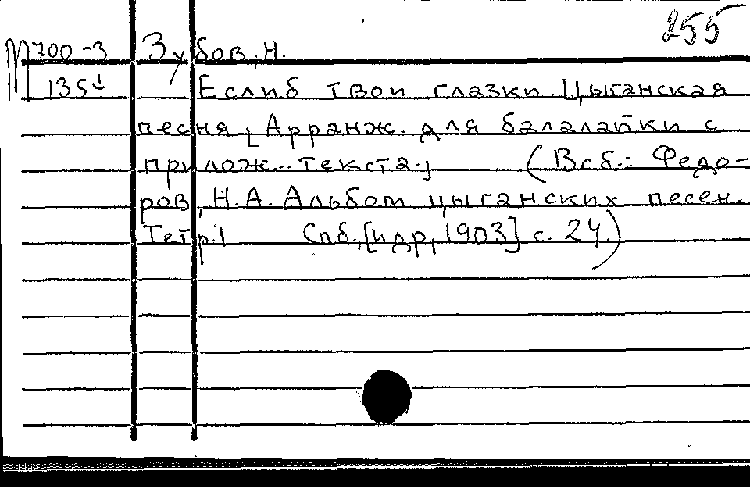 255
М700-3 Зубов, Н.
135¹ Еслиб твои глазки. Цыганская
песня, [Арранж. для балалайки с
прилож. текста.] (В сб.: Федо-
ров, Н.А. Альбом цыганских песен.
Тетр. 1 Спб., [ц др, 1903] с. 24.)